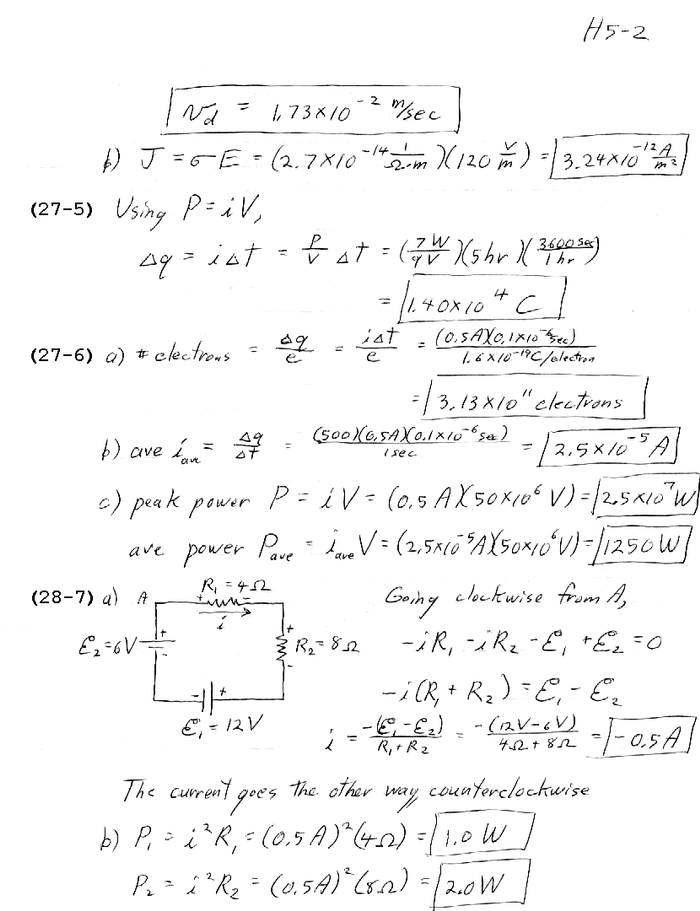 H5-2
v_d = 1.73×10^-2 m/sec
b) J = σE = (2.7×10^-14 1/Ω·m)(120 V/m) = 3.24×10^-12 A/m²
(27-5) Using P = iV,
Δq = iΔt = P/V Δt = (7W/9V)(5hr)(3600 sec/1 hr)
= 1.40×10^4 C
(27-6) a) # electrons = Δq/e = iΔt/e = (0.5A)(0.1×10^-6 sec)/1.6×10^-19 C/electron
= 3.13×10^11 electrons
b) ave i_ave = Δq/ΔT = (500)(0.5A)(0.1×10^-6 sec)/1 sec = 2.5×10^-5 A
c) peak power P = iV = (0.5 A)(50×10^6 V) = 2.5×10^7 W
ave power P_ave = i_ave V = (2.5×10^-5 A)(50×10^6 V) = 1250 W
(28-7) a) A R₁ = 4Ω Going clockwise from A,
+ - i +
ℰ₂ = 6V + - R₂ = 8Ω -iR₁ - iR₂ - ℰ₁ + ℰ₂ = 0
- + -
-i(R₁ + R₂) = ℰ₁ - ℰ₂
ℰ₁ = 12V i = -(ℰ₁ - ℰ₂)/R₁ + R₂ = -(12V - 6V)/4Ω + 8Ω = -0.5A
The current goes the other way, counterclockwise
b) P₁ = i²R₁ = (0.5A)²(4Ω) = 1.0 W
P₂ = i²R₂ = (0.5A)²(8Ω) = 2.0 W